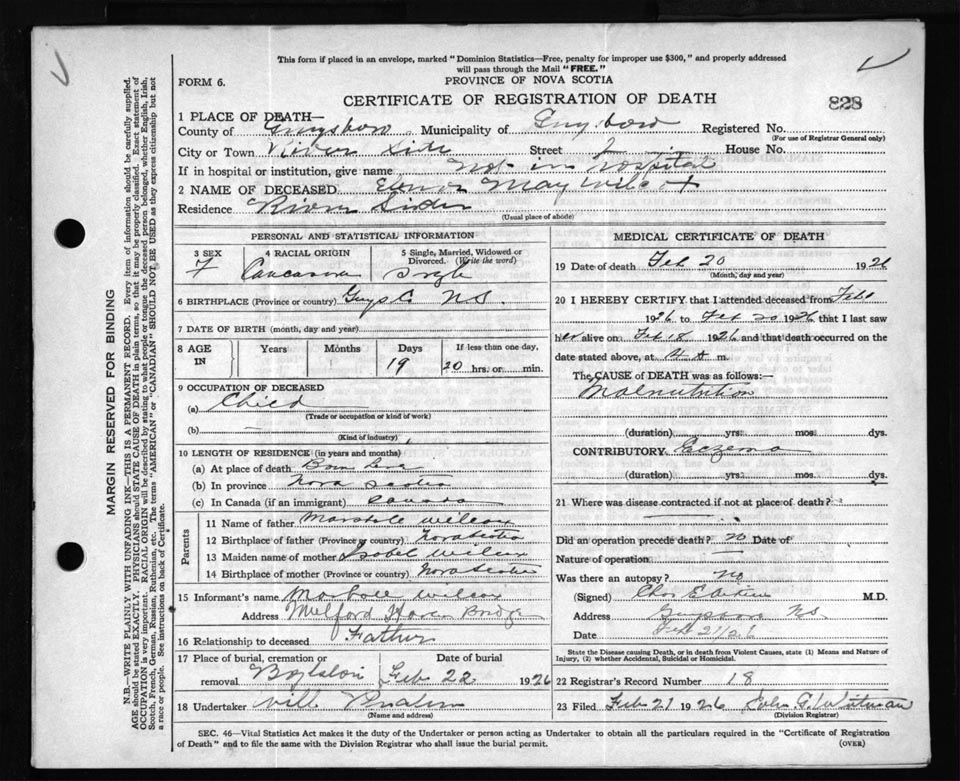 This form if placed in an envelope, marked "Dominion Statistics—Free, penalty for improper use $300," and properly addressed
will pass through the Mail "FREE."
FORM 6.
PROVINCE OF NOVA SCOTIA
CERTIFICATE OF REGISTRATION OF DEATH
828
1 PLACE OF DEATH—
County of Guysboro Municipality of Guysboro Registered No.
(For use of Registrar General only)
City or Town River Side Street House No.
If in hospital or institution, give name Not in hospital
2 NAME OF DECEASED May Wilcox
Residence River Side
(Usual place of abode)
PERSONAL AND STATISTICAL INFORMATION
3 SEX 4 RACIAL ORIGIN 5 Single, Married, Widowed or
Divorced. (Write the word)
F Single
6 BIRTHPLACE (Province or country) Guys Co NS.
7 DATE OF BIRTH (month, day and year)
8 AGE IN Years Months Days If less than one day,
19 20 hrs. or min.
9 OCCUPATION OF DECEASED
(a) Child
(Trade or occupation or kind of work)
(b) —
(Kind of industry)
10 LENGTH OF RESIDENCE (in years and months)
(a) At place of death Born here
(b) In province Nova Scotia
(c) In Canada (if an immigrant) Canada
Parents
11 Name of father Wilcox
12 Birthplace of father (Province or country) Nova Scotia
13 Maiden name of mother Isobel Wilcox
14 Birthplace of mother (Province or country) Nova Scotia
15 Informant's name Wilcox
Address Milford Haven Bridge
16 Relationship to deceased Father
17 Place of burial, cremation or Date of burial
removal Boylston Feb 22 1926
18 Undertaker
(Name and address)
MEDICAL CERTIFICATE OF DEATH
19 Date of death Feb 20 1926
(Month, day and year)
20 I HEREBY CERTIFY that I attended deceased from Feb
1926 to Feb 20 1926 that I last saw
her alive on Feb 18 1926 and that death occurred on the
date stated above, at m.
The CAUSE of DEATH was as follows:—
Malnutrition
(duration) yrs. mos. dys.
CONTRIBUTORY Eczema
(duration) yrs. mos. dys.
21 Where was disease contracted if not at place of death?
Did an operation precede death? no Date of
Nature of operation —
Was there an autopsy? no
(Signed) M.D.
Address NS
Date Feb 21/26
State the Disease causing Death, or in death from Violent Causes, state (1) Means and Nature of
Injury, (2) whether Accidental, Suicidal or Homicidal.
22 Registrar's Record Number 18
23 Filed Feb 21 1926 Whitman
(Division Registrar)
SEC. 46—Vital Statistics Act makes it the duty of the Undertaker or person acting as Undertaker to obtain all the particulars required in the "Certificate of Registration
of Death" and to file the same with the Division Registrar who shall issue the burial permit.
(OVER)
MARGIN RESERVED FOR BINDING
N.B.—WRITE PLAINLY WITH UNFADING INK—THIS IS A PERMANENT RECORD. Every item of information should be carefully supplied.
AGE should be stated EXACTLY. PHYSICIANS should STATE CAUSE OF DEATH in plain terms, so that it may be properly classified. Exact statement of
OCCUPATION is very important. RACIAL ORIGIN will be described by stating to what people or tongue the deceased person belonged, whether English, Irish,
Scotch, French, German, Russian, Ruthenian, etc. The terms "AMERICAN" or "CANADIAN" SHOULD NOT BE USED as they express citizenship but not
a race or people. See instructions on back of Certificate.